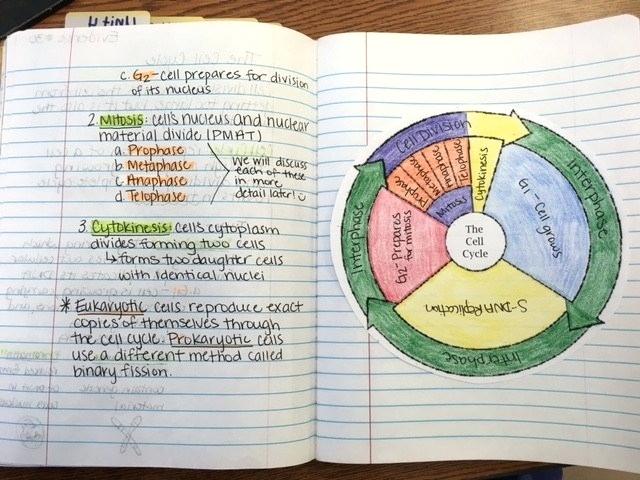 c. G2-cell prepares for division
of its nucleus
2. Mitosis: cell's nucleus and nuclear
material divide (PMAT)
a. Prophase
b. Metaphase
c. Anaphase
d. Telophase
we will discuss
each of these
in more
detail later!
3. Cytokinesis: cell's cytoplasm
divides forming two cells
↳ forms two daughter cells
with identical nuclei
* Eukaryotic cells reproduce exact
copies of themselves through
the cell cycle. Prokaryotic cells
use a different method called
binary fission.
Cell Division
Prophase
Metaphase
Anaphase
Telophase
Mitosis
Cytokinesis
Interphase
G1-Cell grows
The
Cell
Cycle
Interphase
G2-Prepares
for mitosis
S-DNA Replication
Interphase